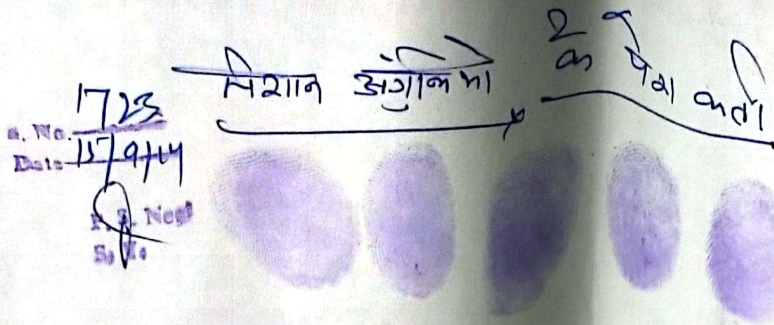 निशान अंगुलियो
पेश कर्ता
S. No. 1723
Date 15/9/14
Negi